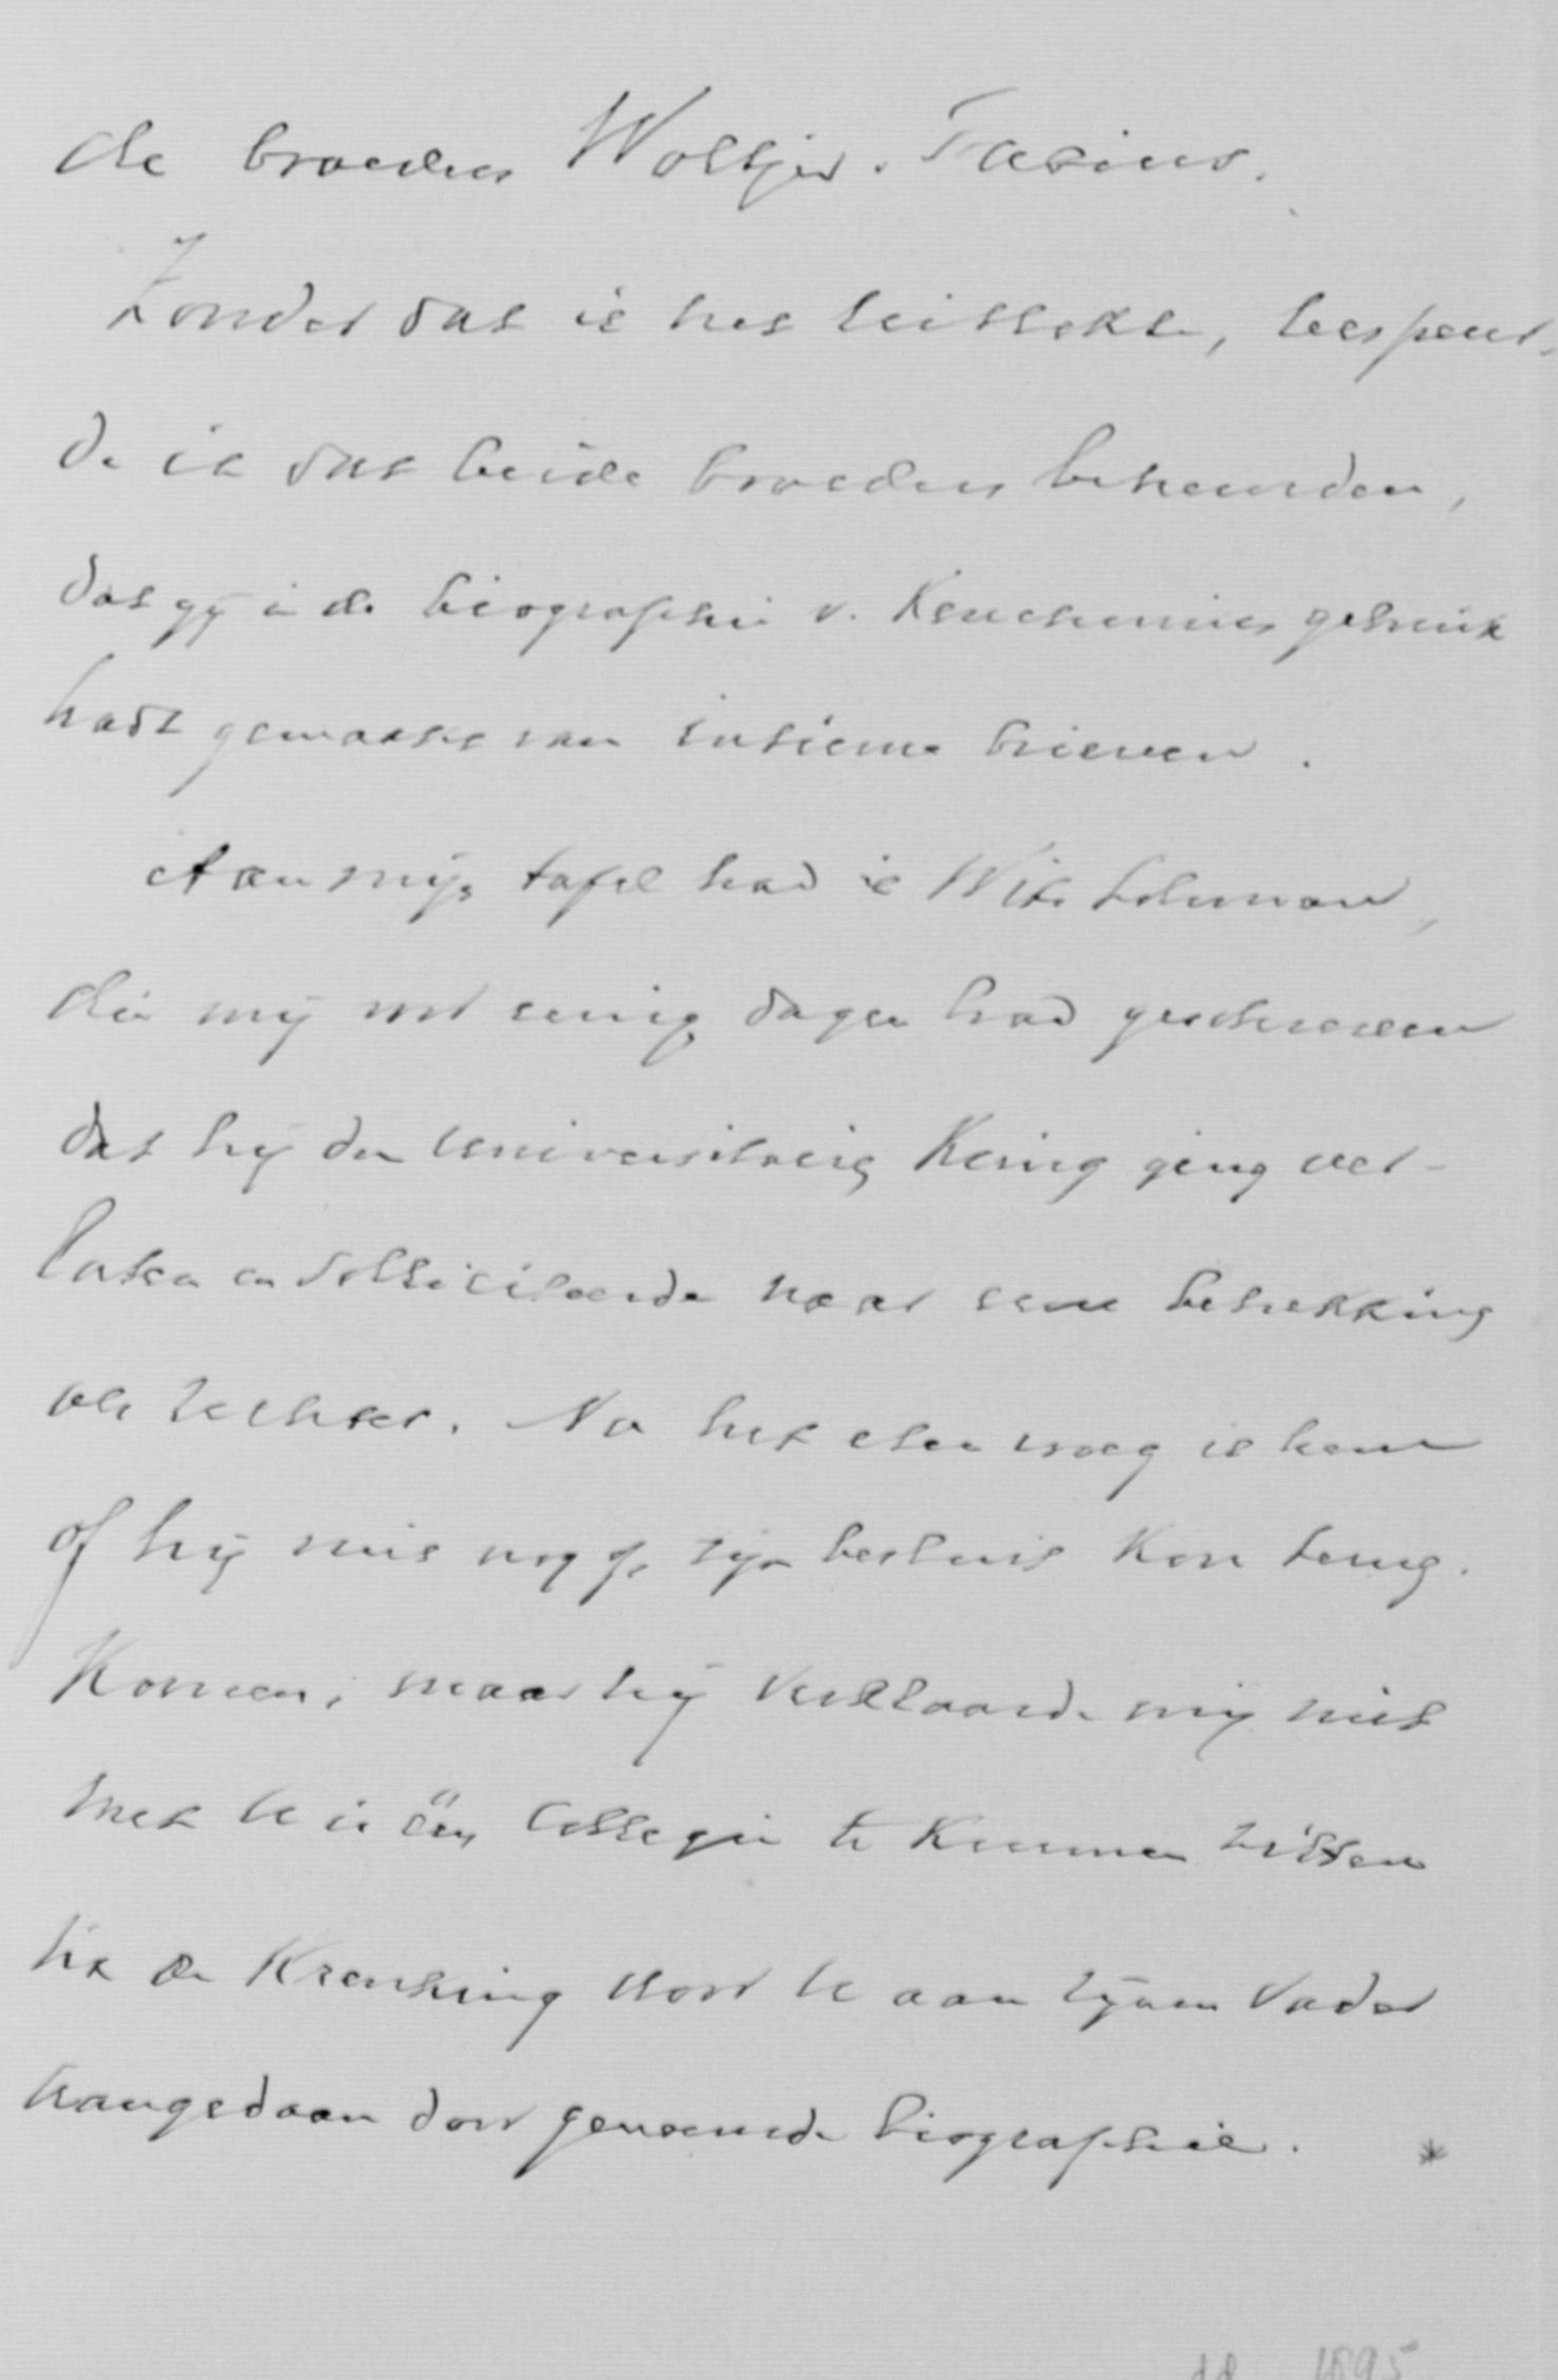 de broeders Woltjer. Fabius.
Zonder dat ik het uitlokte, bespeur-
de ik dat beide broeders betreurden,
dat gij in de biographie v. Keuchenius gebruik
hadt gemaakt van intieme brieven.
Aan mijn tafel had ik Witt Lohman,
die mij voor eenige dagen had geschreven
dat hij den universitairen Kring ging ver-
laten en solliciteerde naar eene betrekking
als rechter. Na het eten vroeg ik hem
of hij niet nog op zijn besluit kon terug-
komen, maar hij verklaarde mij niet
met U in één Collegie te kunnen zitten
de Krenking door U aan zijnen Vader
aangedaan door genoemde biographie. *
1895